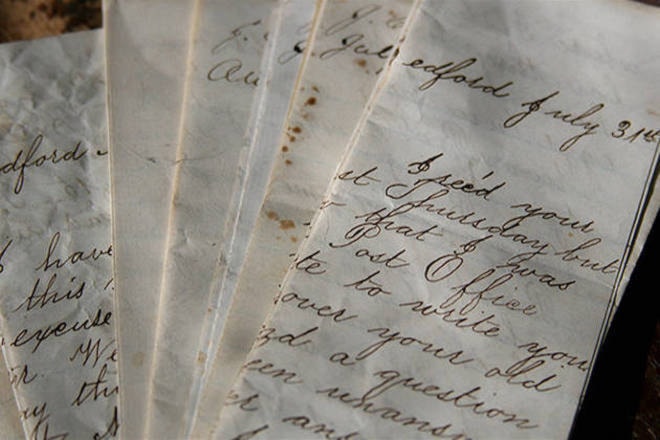 dford
have
this
excuse
r. We
ay th
J.
Au
J. July
edford July 31st
I rec'd your
st Thursday but
that I was
Post Office
te to write you
over your old
nd a question
een unansw
er an